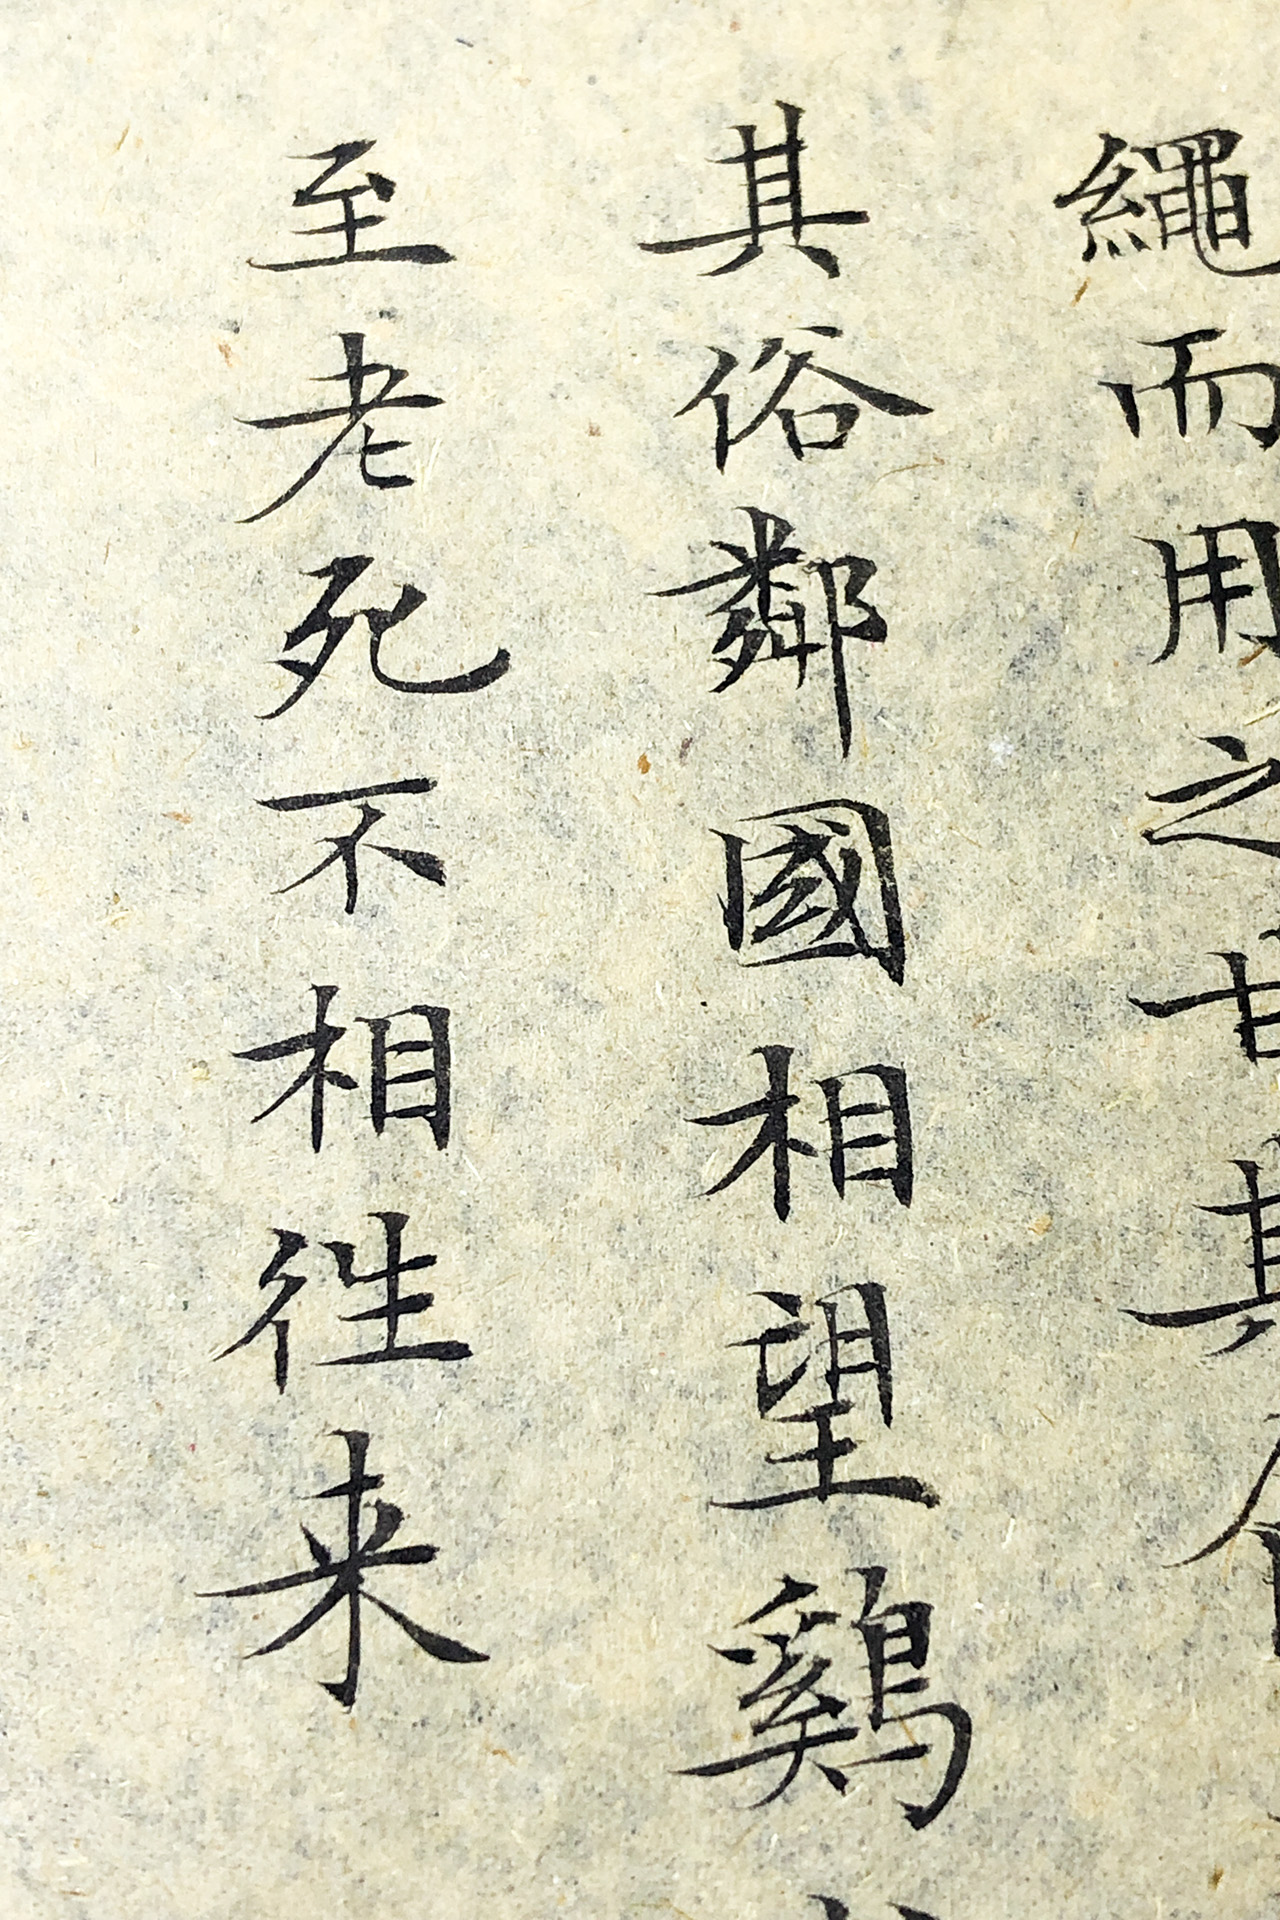 繩而用之甘其食
其俗鄰國相望鷄
至老死不相徃来